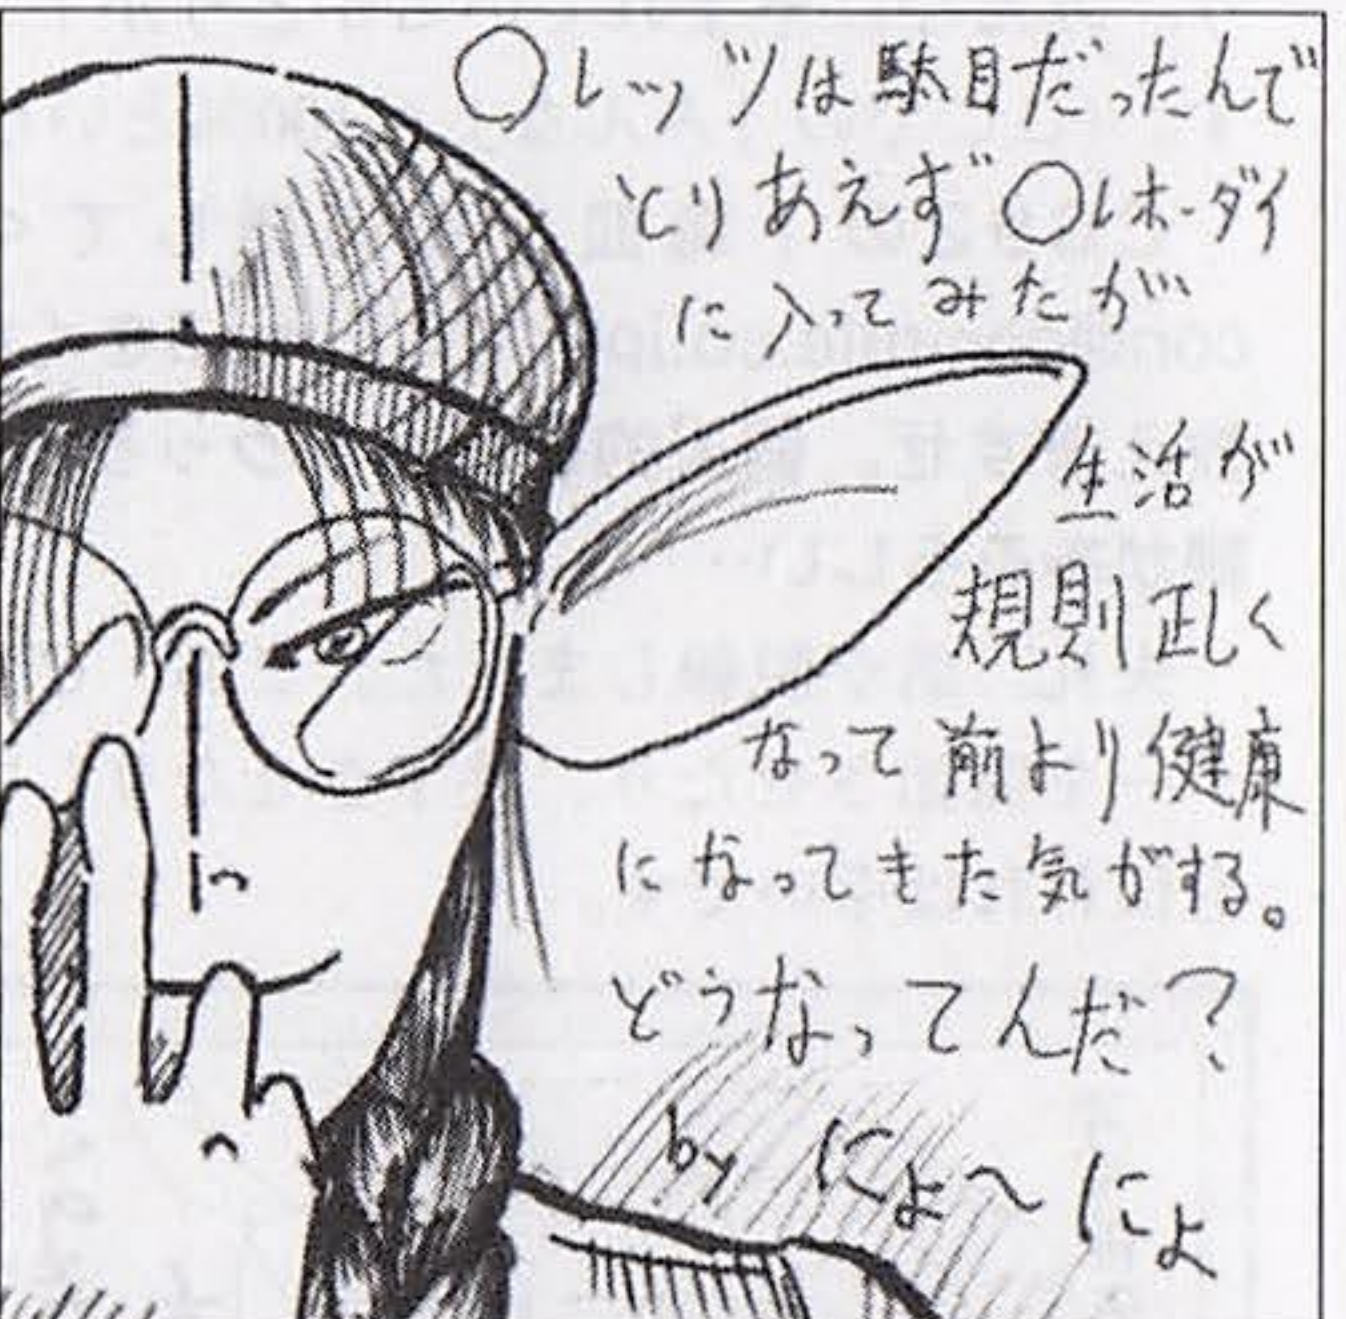 ○レッツは駄目だったんで
とりあえず○レホーダイ
に入ってみたが
生活が
規則正しく
なって前より健康
になってきた気がする。
どうなってんだ?
by にょ～にょ